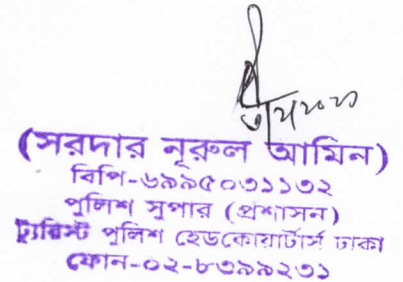 (সরদার নূরুল আমিন)
বিপি-৬৯৯৫০৩১১৩২
পুলিশ সুপার (প্রশাসন)
ট্যুরিস্ট পুলিশ হেডকোয়ার্টার্স ঢাকা
ফোন-০২-৮৩৯৯২৩১